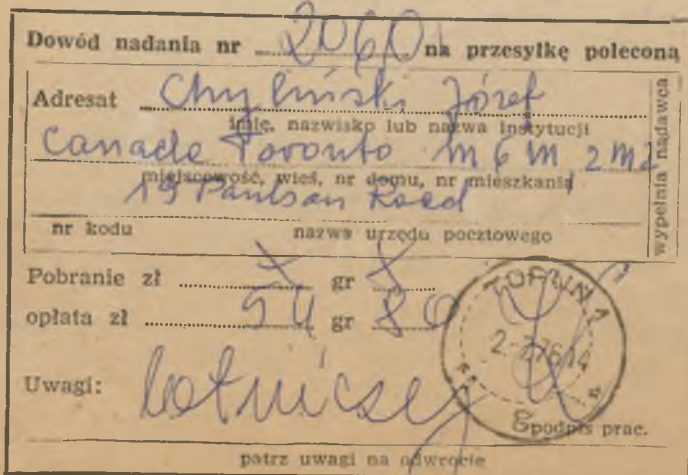 Dowód nadania nr 2060 na przesyłkę poleconą
Adresat Chyliński Józef
imię, nazwisko lub nazwa instytucji
Canade Toronto M6M 2M2
miejscowość, wieś, nr domu, nr mieszkania
19 Paulsan Road
nr kodu nazwa urzędu pocztowego
wypełnia nadawca
Pobranie zł X gr X
opłata zł 54 gr 80
TORUŃ 1
Uwagi: lotnicze
podpis prac.
patrz uwagi na odwrocie